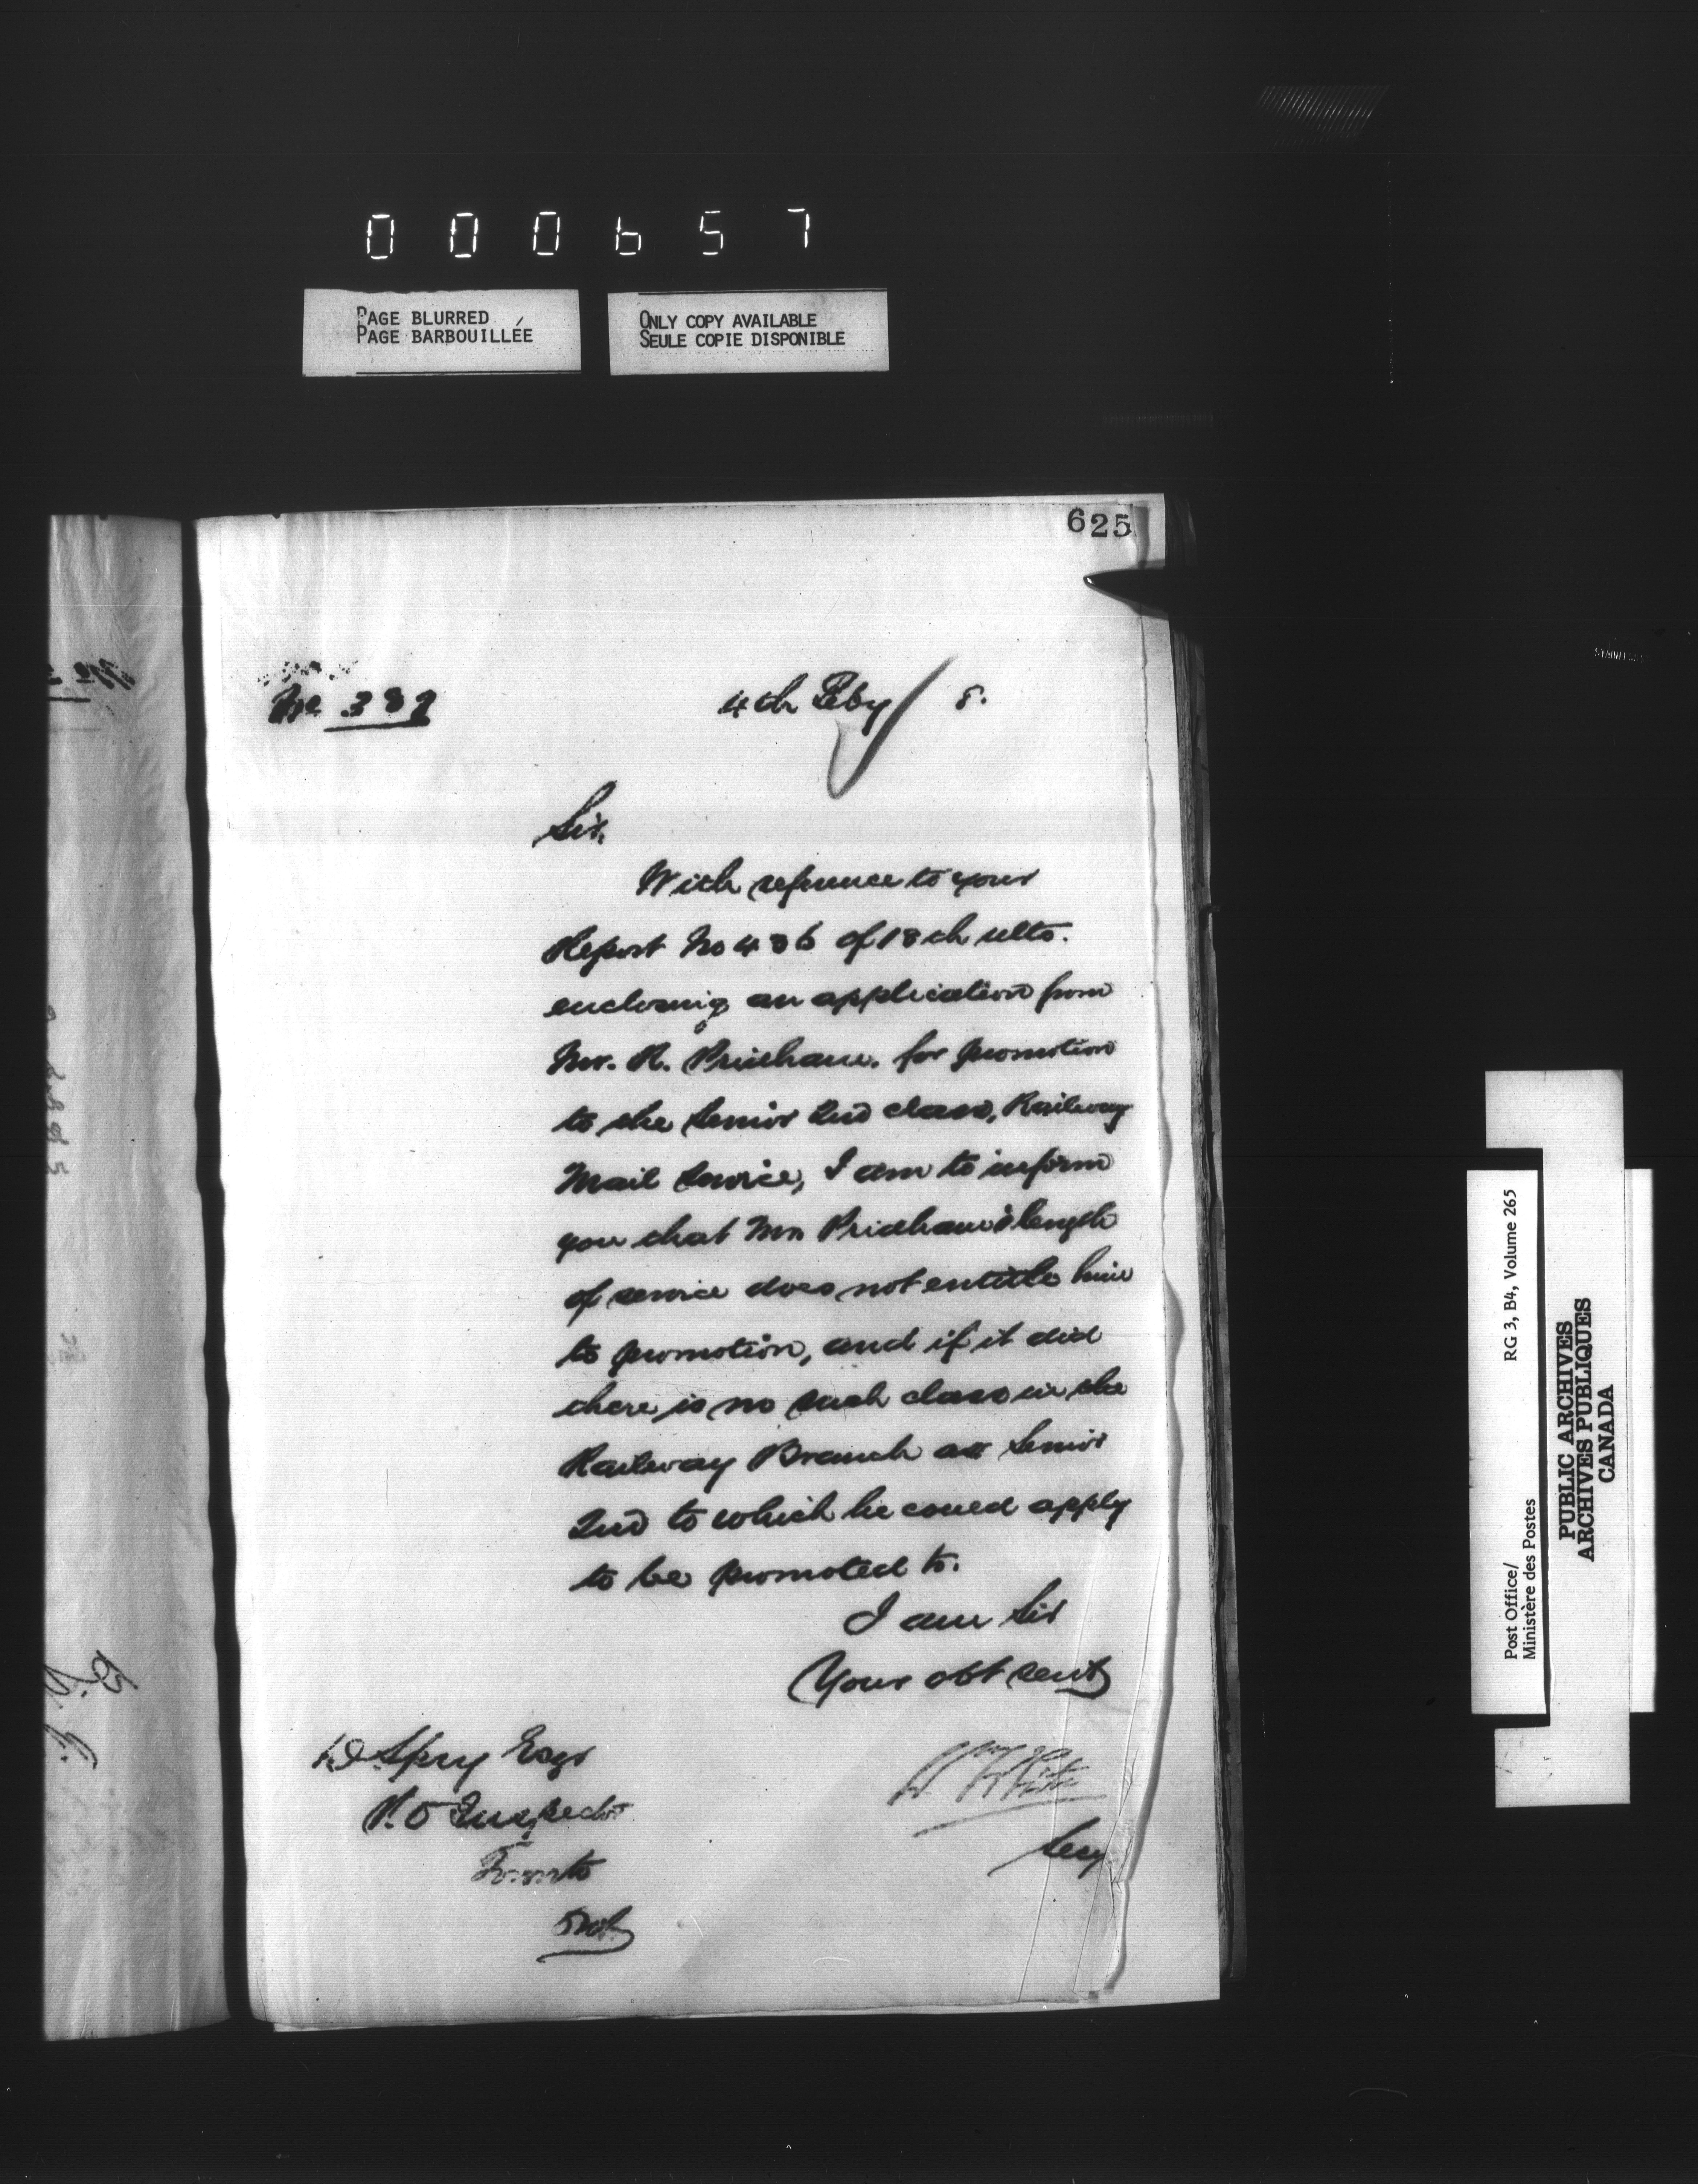 000657
PAGE BLURRED
PAGE BARBOUILLÉE
ONLY COPY AVAILABLE
SEULE COPIE DISPONIBLE
625
No 389
4th Feby 8.
Sir,
With reference to your
Report No 436 of 18th ulto.
enclosing an application from
Mr. R. Pridham. for promotion
to the Senior 2nd class, Railway
Mail Service, I am to inform
you that Mr. Pridham's length
of service does not entitle him
to promotion, and if it did
there is no such class in the
Railway Branch as Senior
2nd to which he could apply
to be promoted to.
I am Sir
Your obt servt
D. Spry Esqr
P.O Inspector
Toronto
Ont.
W White
Secy
Post Office/
Ministère des Postes
RG 3, B4, Volume 265
PUBLIC ARCHIVES
ARCHIVES PUBLIQUES
CANADA